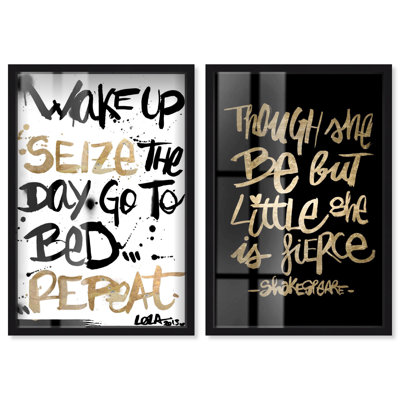 WAKE UP
SEIZE THE
DAY. GO TO
BED...
REPEAT.
LOLA 2013
THOUGH she
BE BUT
LiTTLE she
is FiERCE
-SHAKESPEARE-